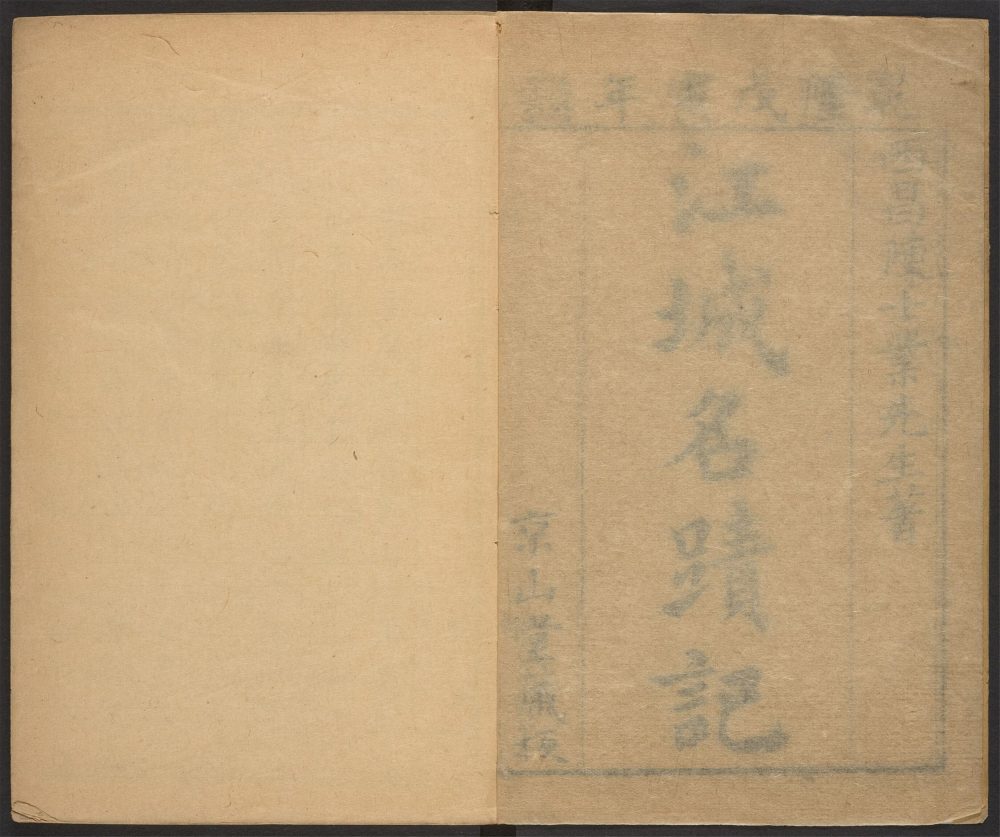 乾隆戊寅年鐫
西昌陳士業先生著
江城名蹟記
京山堂藏板